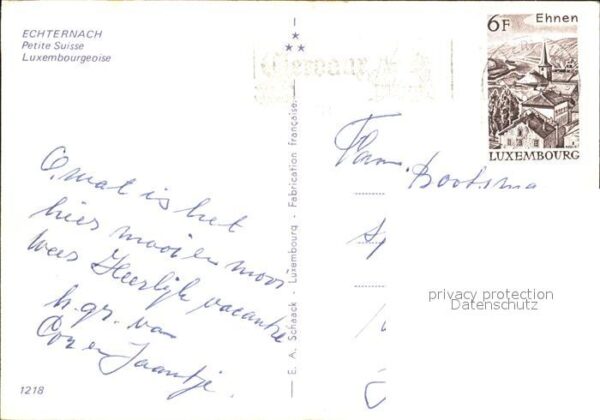 ECHTERNACH
Petite Suisse
Luxembourgeoise
6F Ehnen
LUXEMBOURG
Clervaux
Fam. Bootsma
O, wat is het
hier mooi en
Heerlijk vacantie
h. gr. van
Cor en Jaantje.
E. A. Schaack - Luxembourg - Fabrication française
privacy protection
Datenschutz
1218